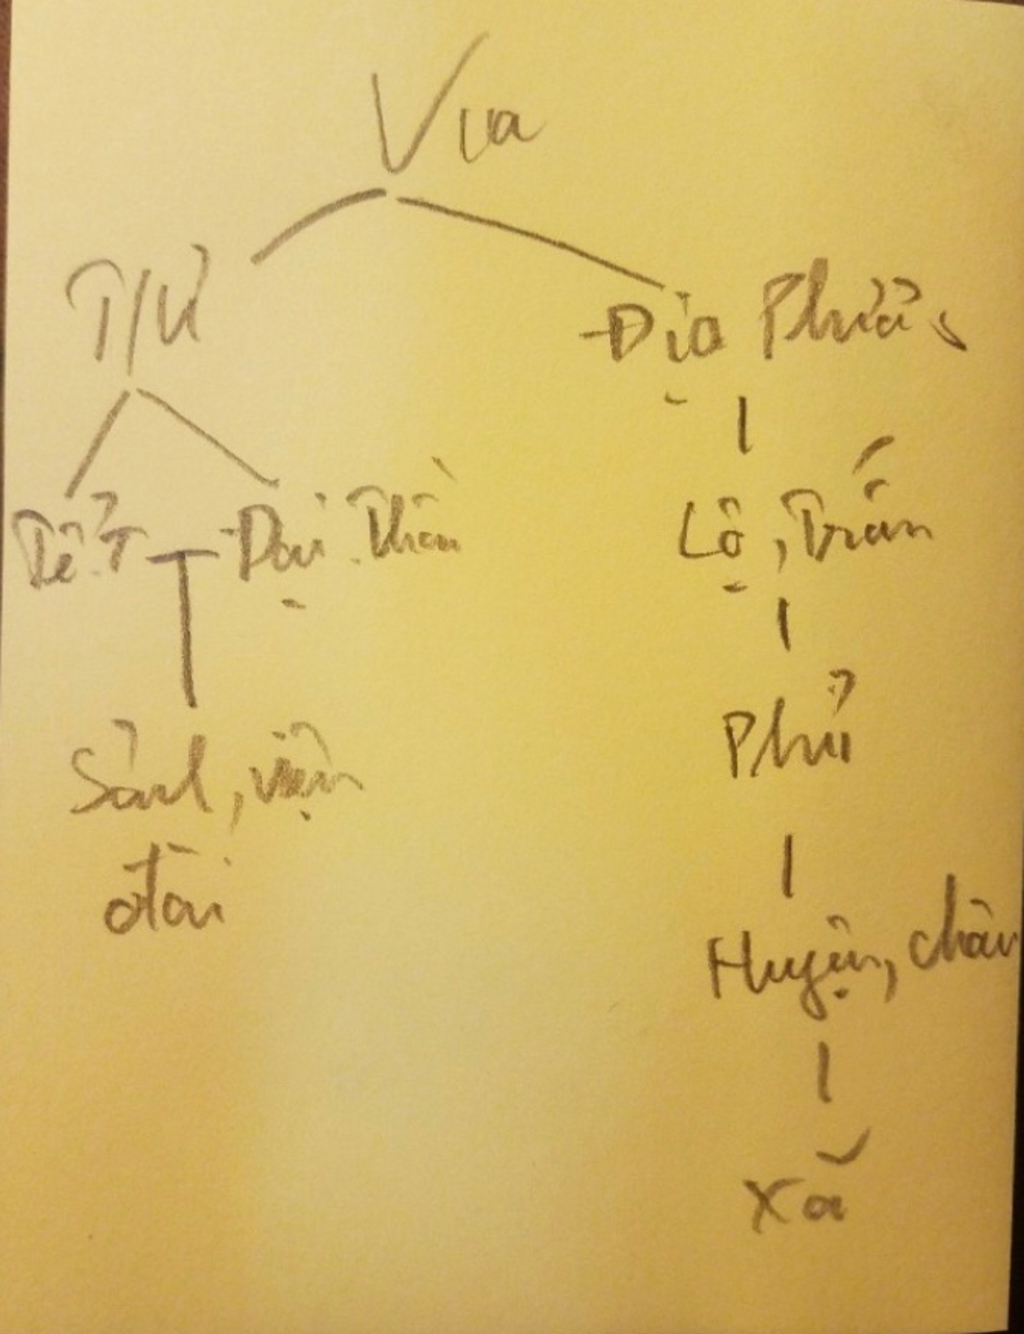 Vua
T/Ư
Địa Phươ
Tể T
Đại Thần
Lộ, Trấn
Sảnh, viện
đài
Phủ
Huyện, châu
Xã